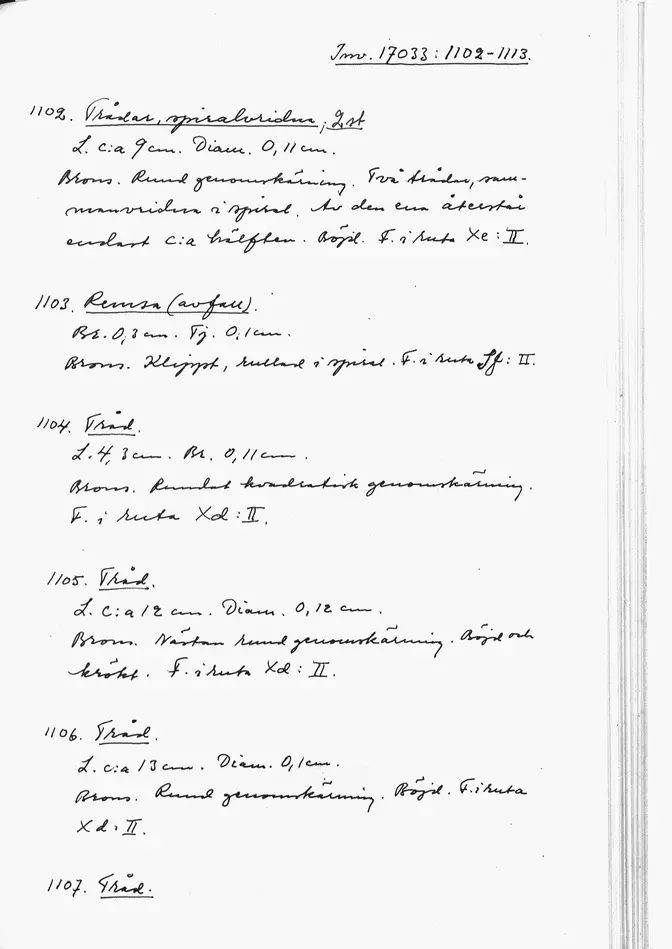 Inv. 17033:1102-1113.
1102. Trådar, spiralvridna, 2 st
L. c:a 9 cm. Diam. 0,11 cm.
Brons. Rund genomskärning. Två trådar, sam-
manvridna i spiral. Av den ena återstår
endast c:a hälften. Böjd. F. i ruta Xe:II.
1103. Remsa (avfall).
Br. 0,3 cm. Tj. 0,1 cm.
Brons. Klippt, rullad i spiral. F. i ruta Sf: II.
1104. Tråd.
L. 4,3 cm. Br. 0,11 cm.
Brons. Rundat kvadratisk genomskärning.
F. i ruta Xd:II.
1105. Tråd.
L. c:a 12 cm. Diam. 0,12 cm.
Brons. Nästan rund genomskärning. Böjd och
krökt. F. i ruta Xd: II.
1106. Tråd.
L. c:a 13 cm. Diam. 0,1 cm.
Brons. Rund genomskärning. Böjd. F. i ruta
Xd: II.
1107. Tråd.